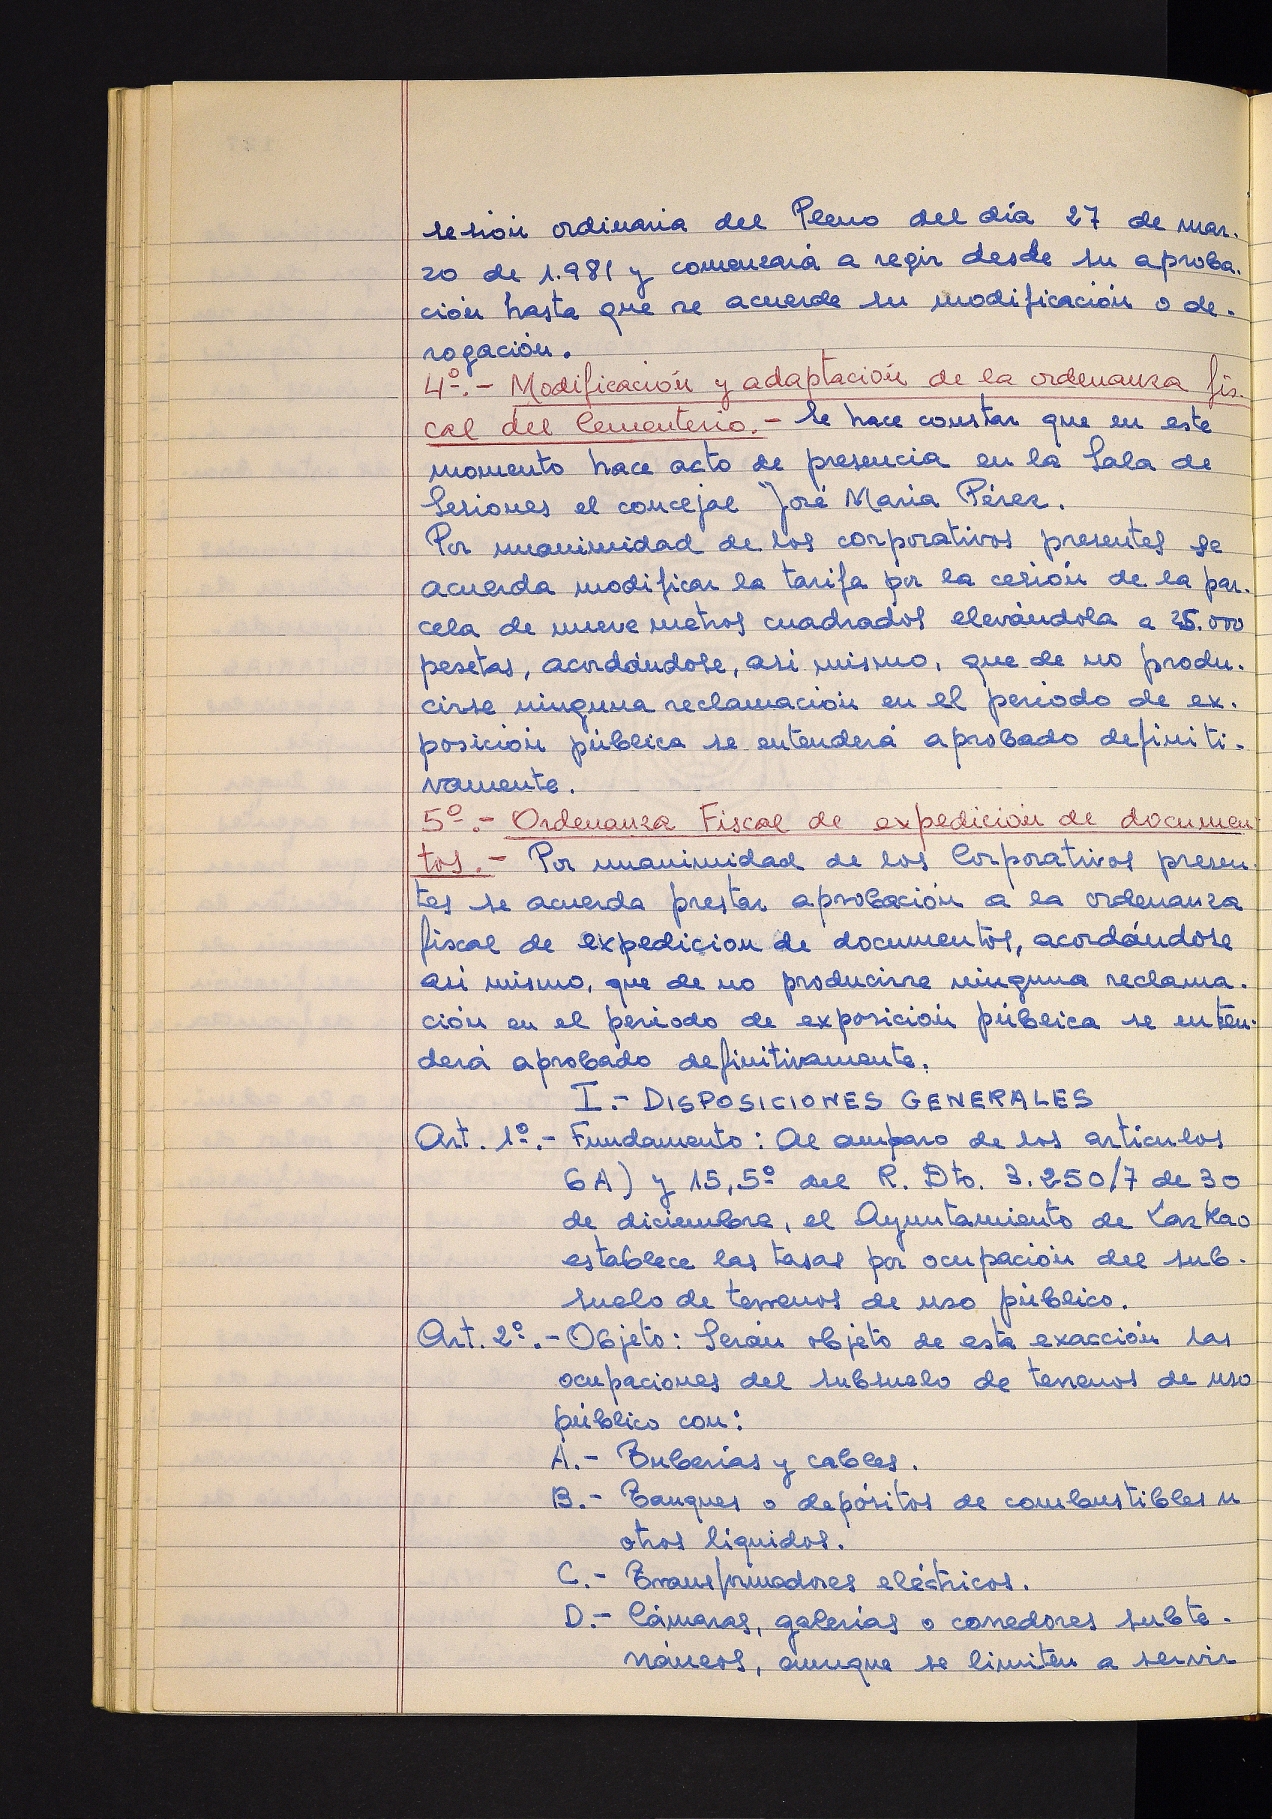 sesión ordinaria del Pleno del día 27 de mar-
zo de 1.981 y comenzará a regir desde su aproba-
ción hasta que se acuerde su modificación o de-
rogación.
4º.- Modificación y adaptación de la ordenanza fis-
cal del Cementerio.- Se hace constar que en este
momento hace acto de presencia en la Sala de
Sesiones el concejal José María Pérez.
Por unanimidad de los corporativos presentes se
acuerda modificar la tarifa por la cesión de la par-
cela de nueve metros cuadrados elevándola a 25.000
pesetas, acordándose, asi mismo, que de no produ-
cirse ninguna reclamación en el periodo de ex-
posición pública se entenderá aprobado definiti-
vamente.
5º.- Ordenanza Fiscal de expedición de documen
tos.- Por unanimidad de los Corporativos presen-
tes se acuerda prestar aprobación a la ordenanza
fiscal de expedicion de documentos, acordándose
asi mismo, que de no producirse ninguna reclama-
ción en el periodo de exposición pública se enten-
derá aprobado definitivamente.
I.- DISPOSICIONES GENERALES
Art. 1º.- Fundamento: Al amparo de los artículos
6A) y 15,5º del R. Dto. 3.250/7 de 30
de diciembre, el Ayuntamiento de Lazkao
establece las tasas por ocupación del sub-
suelo de terrenos de uso público.
Art. 2º.- Objeto: Serán objeto de esta exacción las
ocupaciones del subsuelo de terrenos de uso
público con:
A.- Tuberías y cables.
B.- Tanques o depósitos de combustibles u
otros líquidos.
C.- Transformadores eléctricos.
D.- Cámaras, galerías o corredores subte-
rráneos, aunque se limiten a servir